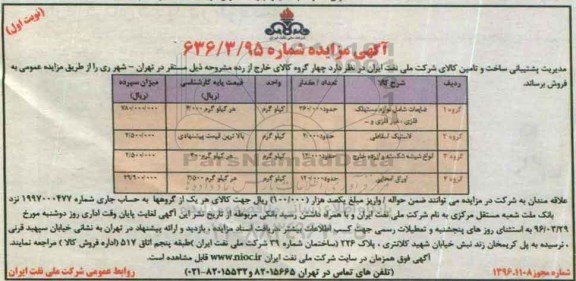 (نوبت اول)
شرکت ملی نفت ایران
آگهی مزایده شماره ۶۳۶/۳/۹۵
مدیریت پشتیبانی ساخت و تامین کالای شرکت ملی نفت ایران در نظر دارد چهار گروه کالای خارج از رده مشروحه ذیل مستقر در تهران – شهر ری را از طریق مزایده عمومی به
فروش برساند.
ردیف شرح کالا تعداد / مقدار واحد قیمت پایه کارشناسی (ریال) میزان سپرده (ریال)
گروه ۱ ضایعات شامل لوازم مستهلک فلزی، غیر فلزی و ... کیلو گرم هر کیلو گرم
گروه ۲ لاستیک اسقاطی کیلو گرم بالاترین قیمت پیشنهادی
گروه ۳ انواع شیشه شکسته و خارج کیلو گرم هر کیلو گرم
گروه ۴ اوراق امحایی کیلو گرم هر کیلو گرم
ParsNamadData
علاقه مندان به شرکت در مزایده می توانند ضمن حواله / واریز مبلغ یکصد هزار (۱۰۰/۰۰۰) ریال جهت کالای هر یک از گروهها به حساب جاری شماره ۱۹۹۷۰۰۰۴۷۷ نزد
بانک ملت شعبه مستقل مرکزی به نام شرکت ملی نفت ایران و با همراه داشتن رسید بانکی مربوطه از تاریخ نشر این آگهی لغایت پایان وقت اداری روز دوشنبه مورخ
۹۶/۰۳/۲۹ به استثنای روز های پنجشنبه و تعطیلات رسمی جهت کسب اطلاعات بیشتر، دریافت اسناد مزایده، بازدید و ارائه پیشنهاد در تهران به نشانی خیابان سپهبد قرنی
، نرسیده به پل کریمخان زند نبش خیابان شهید کلانتری ، پلاک ۲۲۶ (ساختمان شماره ۳۹ شرکت ملی نفت ایران) طبقه پنجم اتاق ۵۱۷ (اداره فروش کالا) مراجعه نمایند.
آگهی فوق همزمان در سایت شرکت ملی نفت ایران www.nioc.ir قابل مشاهده است.
شماره مجوز ۱۳۹۶.۱۱۰۸ (تلفن های تماس در تهران ۸۲۰۱۵۶۶۵ و ۸۲۰۱۵۵۳۲-۰۲۱) روابط عمومی شرکت ملی نفت ایران